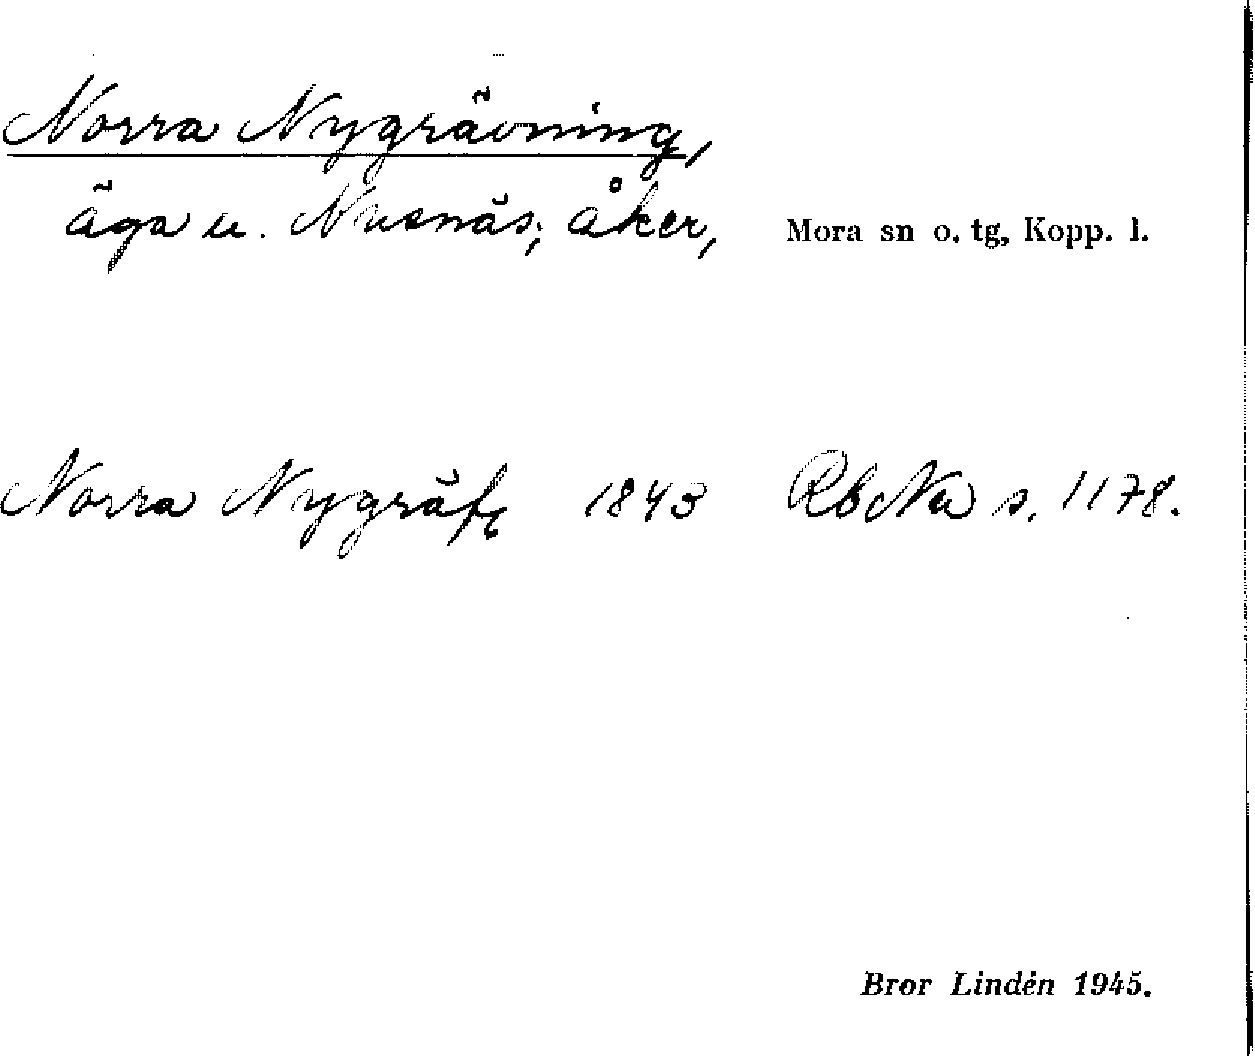 Norra Nygrävning,
äga u. Nusnäs; åker, Mora sn o. tg, Kopp. l.
Norra Nygräfg 1843 RbNa s. 1178.
Bror Lindén 1945.